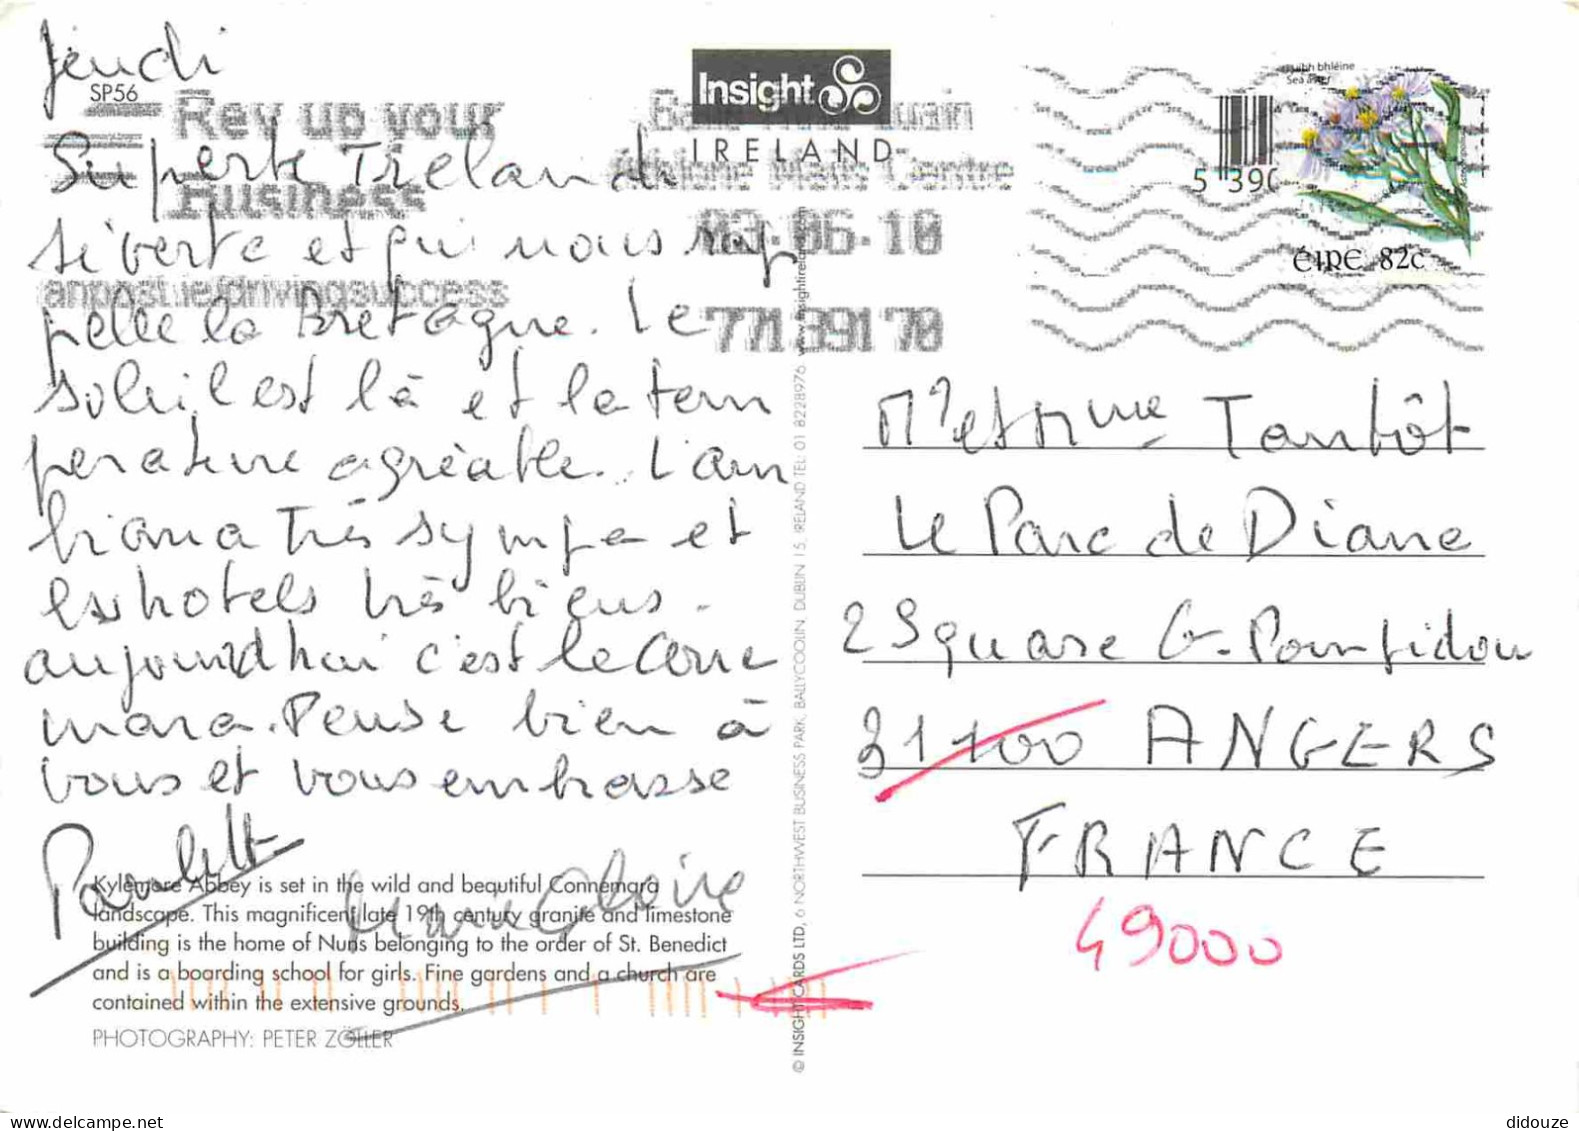 Jeudi
SP56
Superbe Ireland
si verte et qui nous rap
pelle la Bretagne. Le
soleil est là et la tem
pérature agréable. L'am
biance Très sympa et
les hotels très biens.
aujourd'hui c'est le Conne
mara. Pense bien à
vous et vous embrasse
Paulette
Marie Claire
Kylemore Abbey is set in the wild and beautiful Connemara
landscape. This magnificent late 19th century granite and limestone
building is the home of Nuns belonging to the order of St. Benedict
and is a boarding school for girls. Fine gardens and a church are
contained within the extensive grounds.
PHOTOGRAPHY: PETER ZÖLLER
Rev up your
Business
anpost.ie/drivingsuccess
Insight
IRELAND
Mails Centre
03.06.10
77139170
© INSIGHT CARDS LTD, 6 NORTHWEST BUSINESS PARK, BALLYCOOLIN, DUBLIN 15, IRELAND TEL: 01 8228976 www.insightireland.com
5 390
Sea aster
ÉIRE 82c
Mr et Mme Tantôt
Le Parc de Diane
2 Square G. Pompidou
31100 ANGERS
FRANCE
49000
didouze